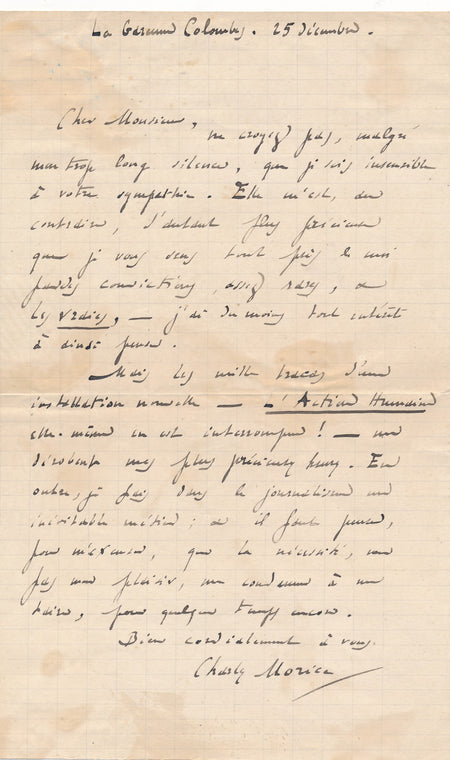 La Garenne Colombes. 25 Décembre.
Cher Monsieur,
ne croyez pas, malgré
mon trop long silence, que je sois insensible
à votre sympathie. Elle m'est, au
contraire, d'autant plus précieuse
que je vous sens tout près de moi
par des convictions, assez rares, et
les vraies, — j'ai du moins tout intérêt
à ainsi penser.
Mais les mille tracas d'une
installation nouvelle — L'Action Humaine
elle-même en est interrompue ! — me
dérobent mes plus précieuses heures. En
outre, je fais dans le journalisme un
inévitable métier ; et il faut penser,
pour m'excuser, que la nécessité, non
pas mon plaisir, me condamne à me
taire, pour quelque temps encore.
Bien cordialement à vous.
Charles Morice